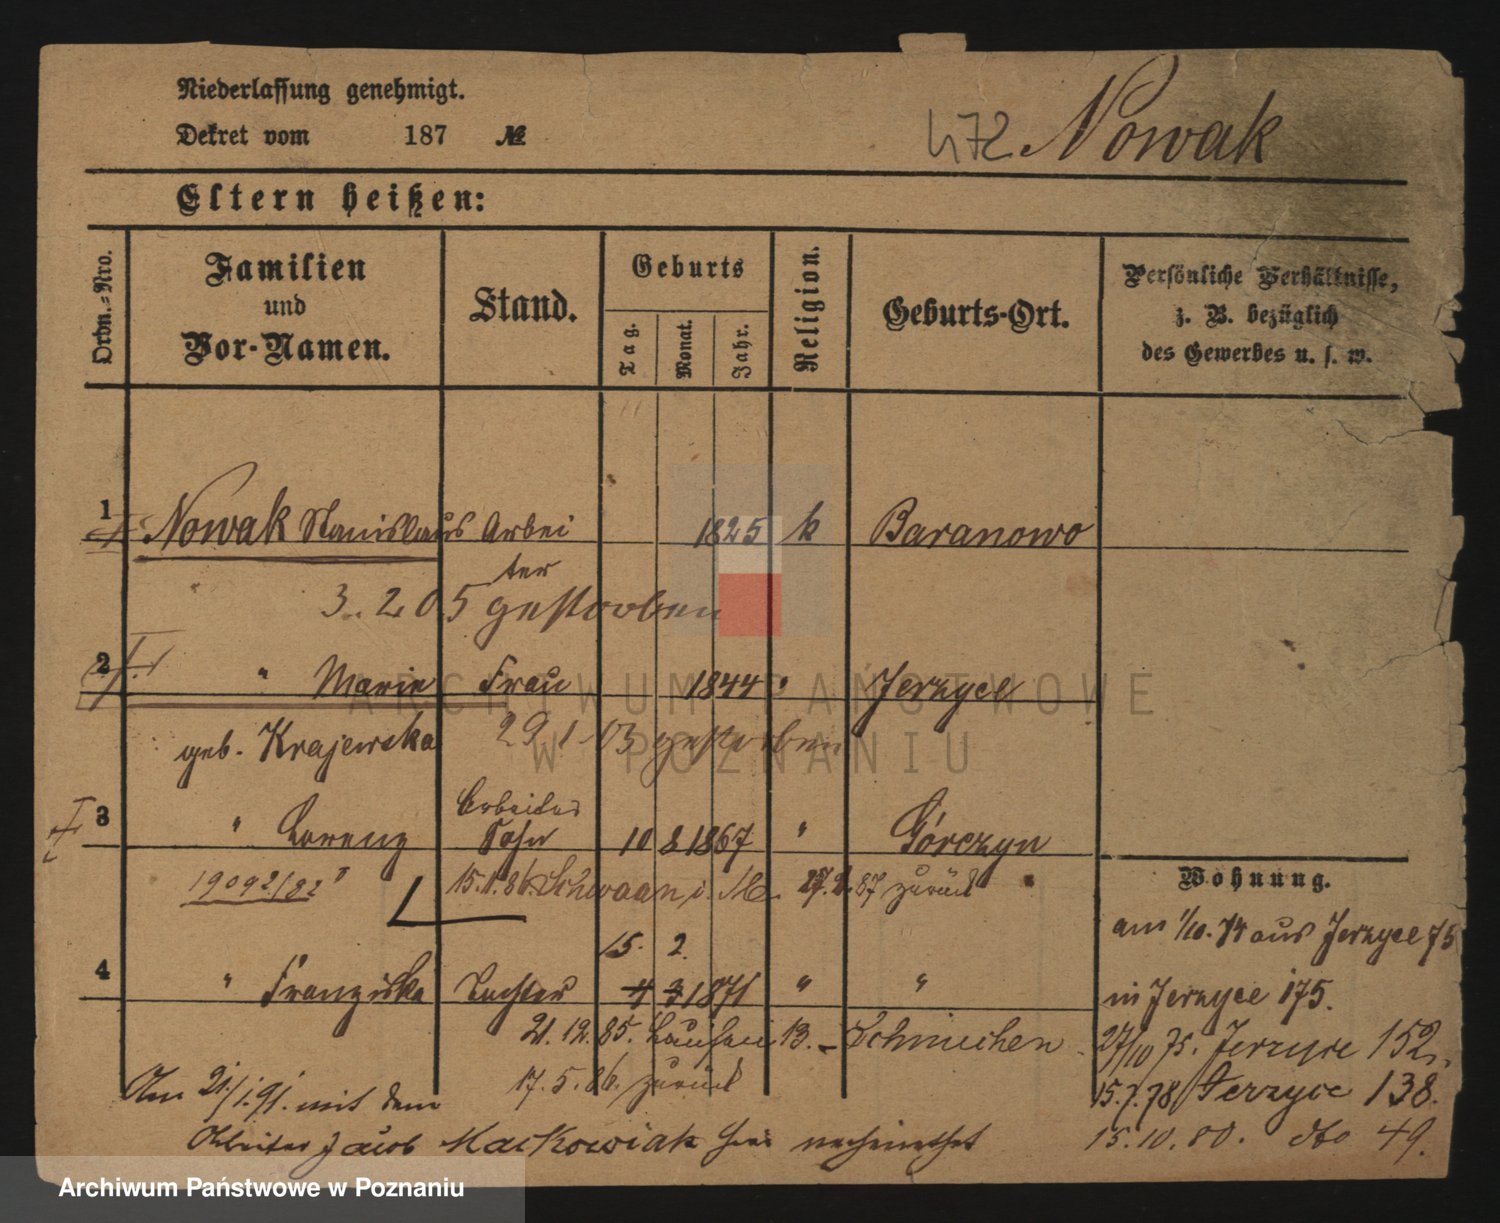 Niederlassung genehmigt.
Dekret vom 187 №
472 Nowak
Eltern heißen:
Ordn.-Nro.
Familien und Vor-Namen.
Stand.
Geburts
Tag.
Monat.
Jahr.
Religion.
Geburts-Ort.
Persönliche Verhältnisse,
z. B. bezüglich
des Gewerbes u. s. w.
1 Nowak Stanislaus Arbei 1825 k Baranowo
ter
3. 2 05 gestorben
2 " Marie Frau 1844 " Jerzyce
geb. Krajewska 29 1 03 gestorben
Arbeiter
3 " Lorenz Sohn 10 8 1867 " Górczyn
19092/82 15.1.86 Schwaan i. M. 87 zurück
Wohnung.
am 1/10. 74 aus Jerzyce 75
15. 2.
4 " Franziska Tochter 4 3 1871 " "
in Jerzyce 175.
21. 12. 85. 13. - Schmichen
27/10 75. Jerzyce 152.
17. 5. 86. zurück
15.7.78 Jerzyce 138.
Am 21/1.91. mit dem
Arbeiter Jacob Mackowiak hier verheirathet
15. 10. 80. dto 49.
ARCHIWUM PAŃSTWOWE
W POZNANIU
Archiwum Państwowe w Poznaniu